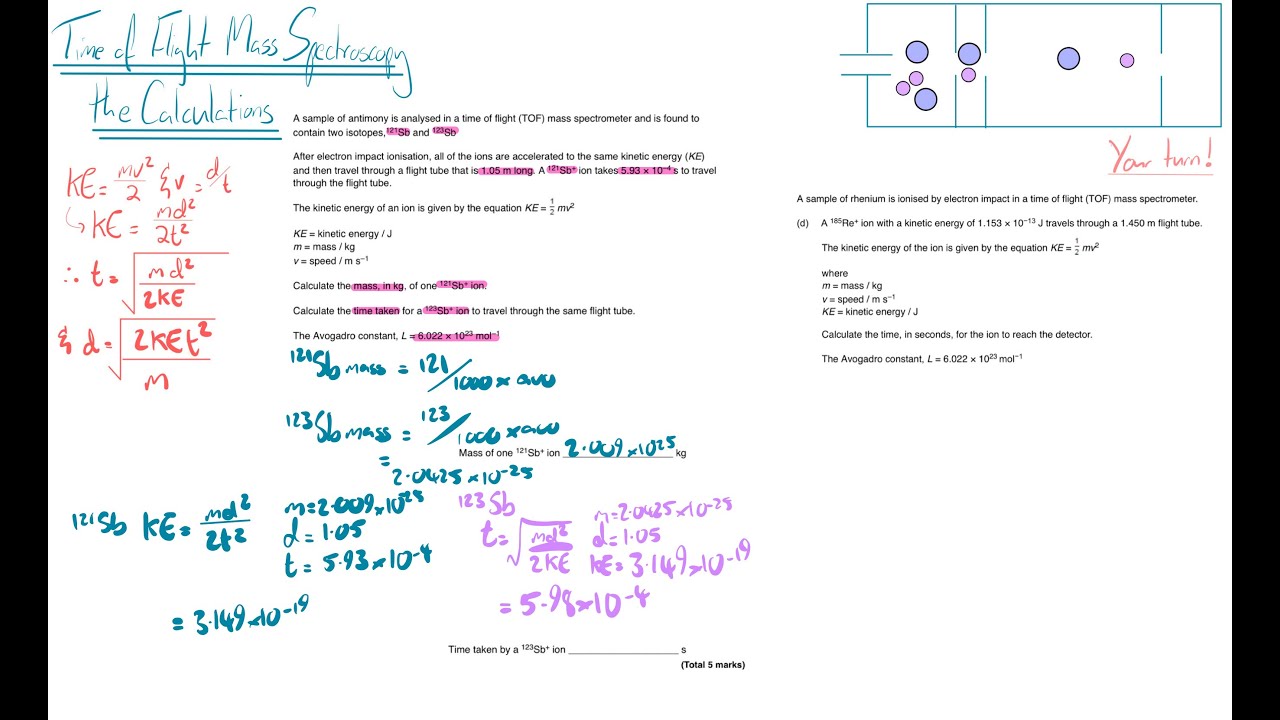 Time of Flight Mass Spectroscopy
the Calculations
KE = mv²/2 & v = d/t
↳ KE = md²/2t²
∴ t = √(md²/2KE)
& d = √(2KEt²/m)
A sample of antimony is analysed in a time of flight (TOF) mass spectrometer and is found to
contain two isotopes, ¹²¹Sb and ¹²³Sb
After electron impact ionisation, all of the ions are accelerated to the same kinetic energy (KE)
and then travel through a flight tube that is 1.05 m long. A ¹²¹Sb⁺ ion takes 5.93 × 10⁻⁴ s to travel
through the flight tube.
The kinetic energy of an ion is given by the equation KE = ½ mv²
KE = kinetic energy / J
m = mass / kg
v = speed / m s⁻¹
Calculate the mass, in kg, of one ¹²¹Sb⁺ ion.
Calculate the time taken for a ¹²³Sb⁺ ion to travel through the same flight tube.
The Avogadro constant, L = 6.022 × 10²³ mol⁻¹
¹²¹Sb mass = 121/1000 × avo
¹²³Sb mass = 123/1000 × avo
= 2.0425 × 10⁻²⁵
Mass of one ¹²¹Sb⁺ ion 2.009 × 10²⁵ kg
¹²¹Sb KE = md²/2t²
m = 2.009 × 10⁻²⁵
d = 1.05
t = 5.93 × 10⁻⁴
= 3.149 × 10⁻¹⁹
¹²³Sb
t = √(md²/2KE)
m = 2.0425 × 10⁻²⁵
d = 1.05
KE = 3.149 × 10⁻¹⁹
= 5.98 × 10⁻⁴
Time taken by a ¹²³Sb⁺ ion ____________________ s
(Total 5 marks)
Your turn!
A sample of rhenium is ionised by electron impact in a time of flight (TOF) mass spectrometer.
(d) A ¹⁸⁵Re⁺ ion with a kinetic energy of 1.153 × 10⁻¹³ J travels through a 1.450 m flight tube.
The kinetic energy of the ion is given by the equation KE = ½ mv²
where
m = mass / kg
v = speed / m s⁻¹
KE = kinetic energy / J
Calculate the time, in seconds, for the ion to reach the detector.
The Avogadro constant, L = 6.022 × 10²³ mol⁻¹